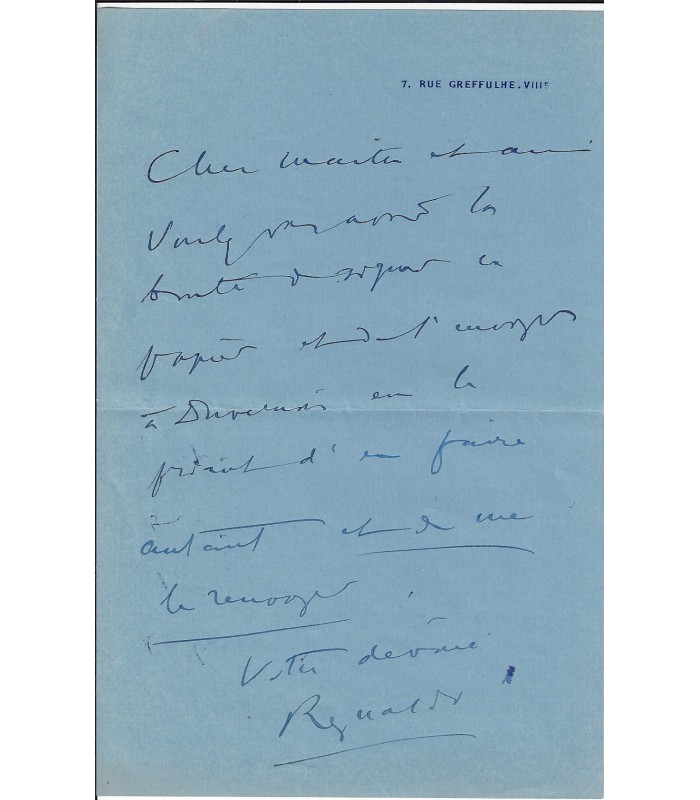 7, RUE GREFFULHE.VIIIE
Cher Maître et ami
Voulez vous avoir la
bonté de signer ce
papier et de l'envoyer
à Duvernois en le
priant d'en faire
autant et de me
le renvoyer.
Votre dévoué
Reynaldo